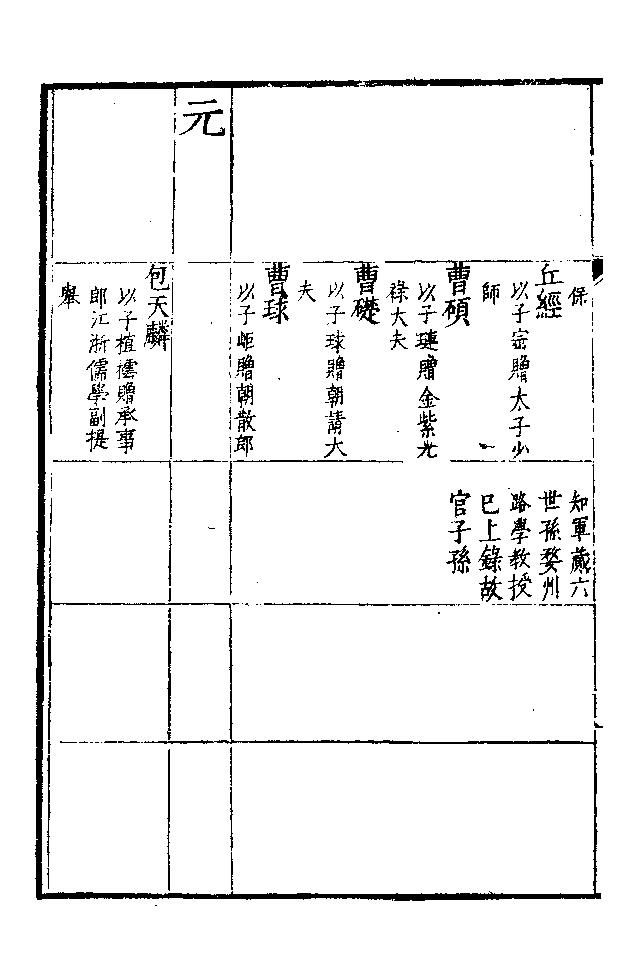 保
丘經
以子崈贈太子少
師
曹碩
以子璉贈金紫光
祿大夫
曹礎
以子球贈朝請大
夫
曹球
以子岠贈朝散郎
知軍蕆六
世孫婺州
路學教授
已上錄故
官子孫
元
包天麟
以子植贈承事
郎江浙儒學副提
舉